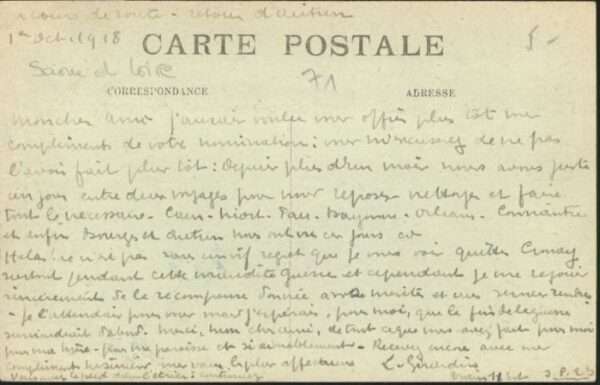 en cours de route - retour d'Autun
1er Oct. 1918
5-
CARTE POSTALE
Saone et Loire
71
CORRESPONDANCE
ADRESSE
Mon cher ami j'aurais voulu vous offrir plus tôt mes
compliments de votre nomination: vous m'excuserez de ne pas
l'avoir fait plus tôt: Depuis plus d'un mois nous avons juste
un jour entre deux voyages pour nous reposer - nettoyer et faire
tout le nécessaire - Caen - Niort - Pau - Bayonne - Orléans -
et enfin Bourges et Autun nous ont ces jours ci
Helas! ce n'est pas sans un vif regret que je vous vois quitter
surtout pendant cette maudite guerre et cependant je me réjouis
sincèrement de la récompense donnée à vos mérites et aux services rendus
- je l'attendais pour vous mais j'espérais, pour moi, que la fin de la guerre
viendrait d'abord. Merci, mon cher ami, de tout ce que vous avez fait pour moi
pour ma mère - pour ma paroisse et si aimablement - Recevez encore avec mes
compliments
affectueux
L. Girardin